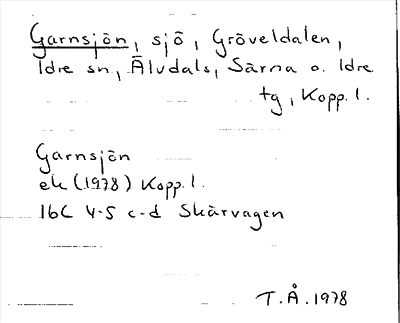 Garnsjön, sjö, Gröveldalen,
Idre sn, Älvdals, Särna o. Idre
tg, Kopp. l.
Garnsjön
ek (1978) Kopp. l.
16C 4-5 c-d Skärvagen
T.Å. 1978